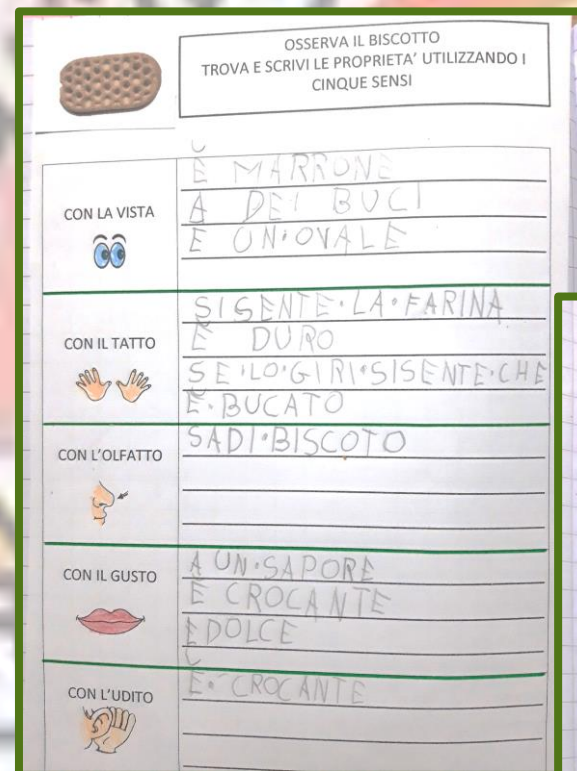 OSSERVA IL BISCOTTO
TROVA E SCRIVI LE PROPRIETA' UTILIZZANDO I
CINQUE SENSI
CON LA VISTA
È MARRONE
A DEI BUCI
E UN•OVALE
CON IL TATTO
SISENTE•LA•FARINA
È DURO
SE•LO•GIRI•SISENTE•CHE
E•BUCATO
CON L'OLFATTO
SADI•BISCOTO
CON IL GUSTO
A UN•SAPORE
E CROCANTE
E DOLCE
CON L'UDITO
E•CROCANTE